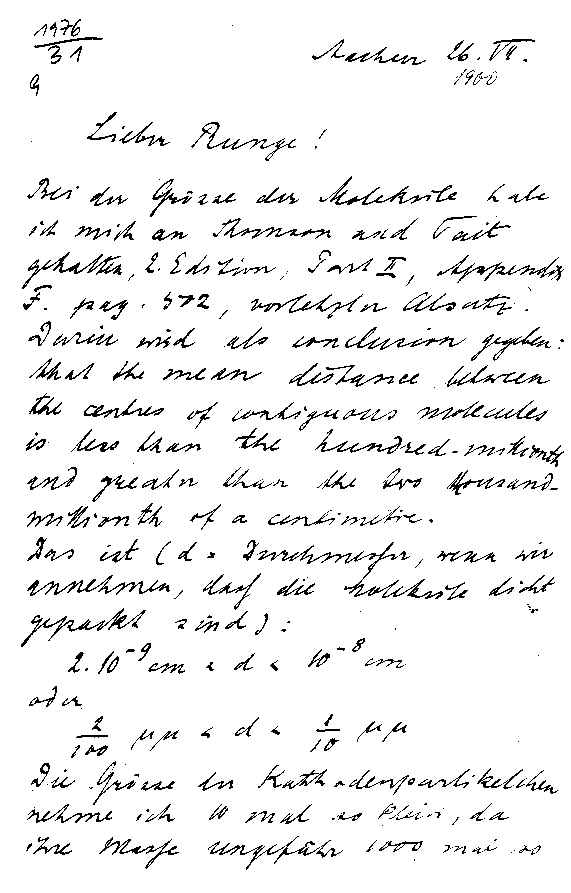 1976
31
9
Aachen 26. VII.
1900
Lieber Runge!
Bei der Grösse der Moleküle habe
ich mich an Thomson and Tait
gehalten, 2. Edition, Part II, Appendix
F. pag. 502, vorletzter Absatz.
Darin wird als conclusion gegeben:
that the mean distance between
the centres of contiguous molecules
is less than the hundred-millionth
and greater than the two thousand-
millionth of a centimetre.
Das ist (d = Durchmesser, wenn wir
annehmen, dass die Moleküle dicht
gepackt sind):
2·10⁻⁹ cm < d < 10⁻⁸ cm
oder
2/100 μμ < d < 1/10 μμ
Die Grösse der Kathodenpartikelchen
nehme ich 10 mal so klein, da
ihre Masse ungefähr 1000 mal so